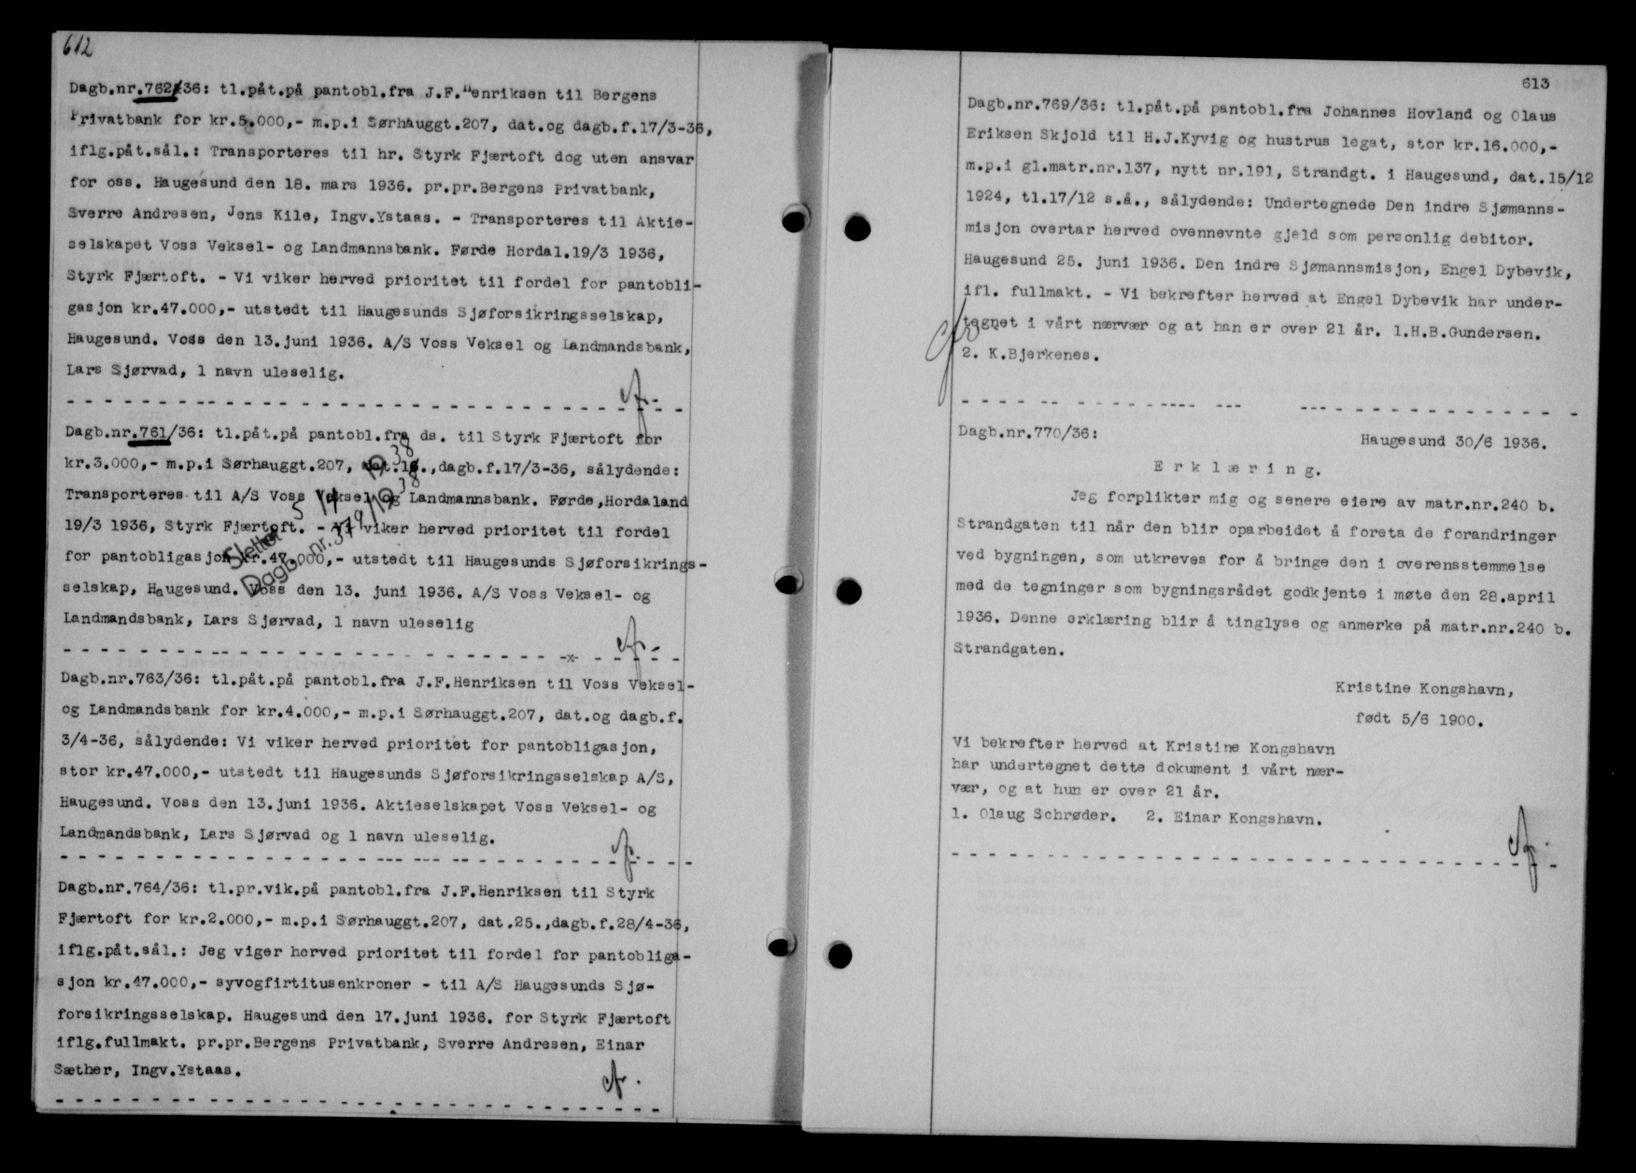 612
Dagb.nr.762/36: tl.påt.på pantobl.fra J.F.Henriksen til Bergens
Privatbank for kr.5.000,- m.p.i Sørhauggt.207, dat.og dagb.f.17/3-36,
iflg.påt.sål.: Transporteres til hr. Styrk Fjærtoft dog uten ansvar
for oss. Haugesund den 18. mars 1936. pr.pr.Bergens Privatbank,
Sverre Andresen, Jens Kile, Ingv.Ystaas. - Transporteres til Aktie-
selskapet Voss Veksel- og Landmannsbank. Førde Hordal.19/3 1936,
Styrk Fjærtoft. - Vi viker herved prioritet til fordel for pantobli-
gasjon kr.47.000,- utstedt til Haugesunds Sjøforsikringsselskap,
Haugesund. Voss den 13.juni 1936. A/S Voss Veksel og Landmandsbank,
Lars Sjørvad, 1 navn uleselig.
Dagb.nr.761/36: tl.påt.på pantobl.fra ds. til Styrk Fjærtoft for
kr.3.000,- m.p.i Sørhauggt.207, dat.16.,dagb.f.17/3-36, sålydende:
Transporteres til A/S Voss Veksel og Landmannsbank. Førde,Hordaland
19/3 1936, Styrk Fjærtoft. - Vi viker herved prioritet til fordel
for pantobligasjon kr.47.000,- utstedt til Haugesunds Sjøforsikrings-
selskap, Haugesund. Voss den 13. juni 1936. A/S Voss Veksel- og
Landmandsbank, Lars Sjørvad, 1 navn uleselig
Slettet 5/4 1938
Dagb.nr.379/1938
Dagb.nr.763/36: tl.påt.på pantobl.fra J.F.Henriksen til Voss Veksel-
og Landmandsbank for kr.4.000,- m.p.i Sørhauggt.207, dat.og dagb.f.
3/4-36, sålydende: Vi viker herved prioritet for pantobligasjon,
stor kr.47.000,- utstedt til Haugesunds Sjøforsikringsselskap A/S,
Haugesund. Voss den 13.juni 1936. Aktieselskapet Voss Veksel- og
Landmandsbank, Lars Sjørvad og 1 navn uleselig.
Dagb.nr.764/36: tl.pr.vik.på pantobl.fra J.F.Henriksen til Styrk
Fjærtoft for kr.2.000,- m.p.i Sørhauggt.207, dat.25.,dagb.f.28/4-36,
iflg.påt.sål.: Jeg viger herved prioritet til fordel for pantobliga-
sjon kr.47.000,- syvogfirtitusenkroner - til A/S Haugesunds Sjø-
forsikringsselskap. Haugesund den 17.juni 1936. for Styrk Fjærtoft
iflg.fullmakt. pr.pr.Bergens Privatbank, Sverre Andresen, Einar
Sæther, Ingv.Ystaas.
613
Dagb.nr.769/36: tl.påt.på pantobl.fra Johannes Hovland og Olaus
Eriksen Skjold til H.J.Kyvig og hustrus legat, stor kr.16.000,-
m.p.i gl.matr.nr.137, nytt nr.191, Strandgt. i Haugesund, dat.15/12
1924, tl.17/12 s.å., sålydende: Undertegnede Den indre Sjømanns-
misjon overtar herved ovennevnte gjeld som personlig debitor.
Haugesund 25. juni 1936. Den indre Sjømannsmisjon, Engel Dybevik,
ifl. fullmakt. - Vi bekrefter herved at Engel Dybevik har under-
tegnet i vårt nærvær og at han er over 21 år. 1.H.B.Gundersen.
2. K.Bjerkenes.
Dagb.nr.770/36:
Haugesund 30/6 1936.
Erklæring.
Jeg forplikter mig og senere eiere av matr.nr.240 b.
Strandgaten til når den blir oparbeidet å foreta de forandringer
ved bygningen, som utkreves for å bringe den i overensstemmelse
med de tegninger som bygningsrådet godkjente i møte den 28.april
1936. Denne erklæring blir å tinglyse og anmerke på matr.nr.240 b.
Strandgaten.
Kristine Kongshavn,
født 5/6 1900.
Vi bekrefter herved at Kristine Kongshavn
har undertegnet dette dokument i vårt nær-
vær, og at hun er over 21 år.
1. Olaug Schrøder. 2. Einar Kongshavn.